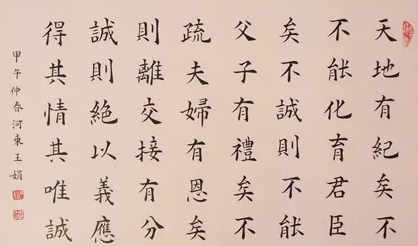 天地有紀矣不
不能化育君臣
矣不誠則不能
父子有禮矣不
疏夫婦有恩矣
則離交接有分
誠則絕以義應
得其情其唯誠
甲午仲春河東王娟